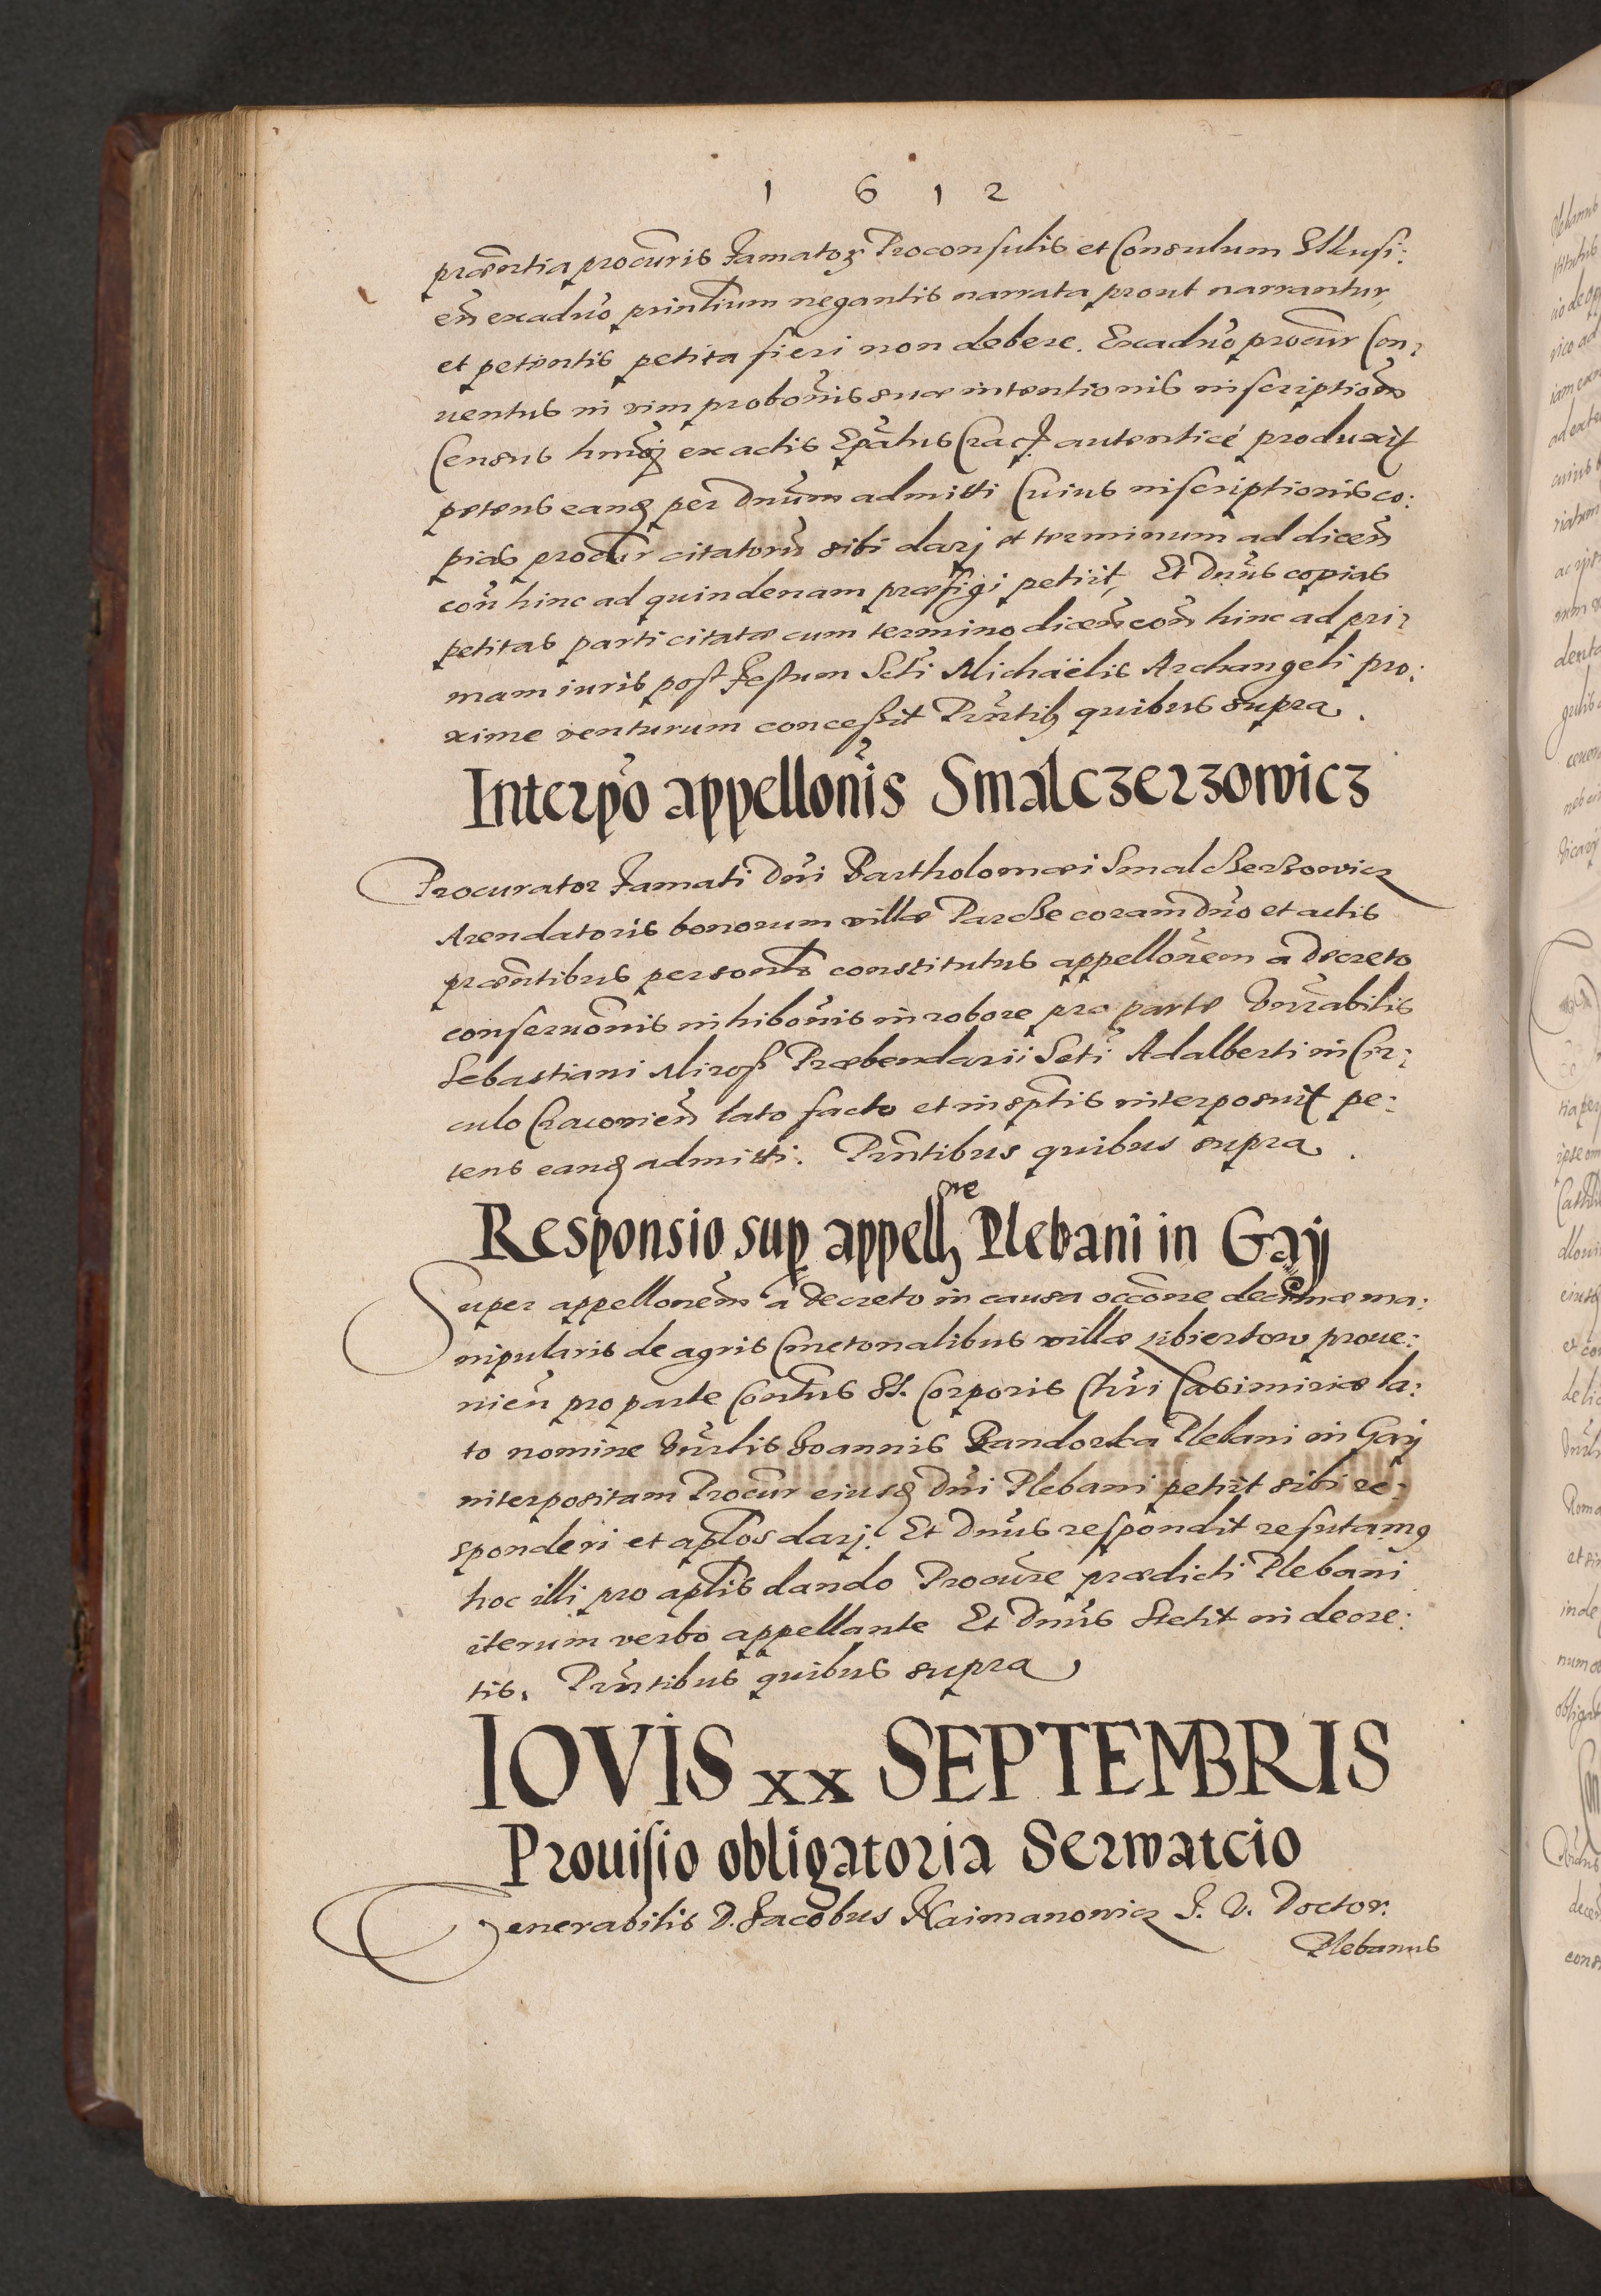 1 6 1 2
præntia procuris Famatoꝝ Proconsulis et Consulum Ilkusi:
eñ exaduo printium negantis narrata prout narrantur,
et petentis petita fieri non debere. Exaduo procur Con:
uentus in vim probonis suæ intentionis inscriptiom
Census hmoj ex actis Epatus Crac: autenticé produxit
petens eandꝫ per Dnum admitti Cuius inscriptionis co:
pias procur citatorũ sibi darj et terminum ad dicen̄
con̄ hinc ad quindenam præfigi petiit, Et Dnus copias
petitas parti citatæ cum termino dicen̄ con̄ hinc ad pri:
mam iuris post Festum Scti Michaëlis Archangeli pro:
xime venturum concessit Prntibꝫ quibus supra.
Interpo appellonis Smalczerzowicz
Procurator Famati Dni Bartholomæi Smalczerzowicz
Arendatoris bonorum villæ Parcze coram Dno et actis
præntibus personlr constitutus appellonem a Decreto
conseruonis inhibonis in robore pro parte Vnrabilis
Sebastiani Mirosz Præbendarii Scti Adalberti in Cir:
culo Cracovien̄ lato facto et in sptis interposuit pe:
tens eandꝫ admitti. Prntibus quibus supra.
Responsio sup appellne Plebani in Gaÿ
Super appellonem a Decreto in causa occone decimæ ma:
nipularis de agris Cmetonalibus villæ Libiertow proue:
nien̄ pro parte Contus SS. Corporis Chri Casimiriæ la:
to nomine Vnrlis Joannis Bandorka Plebani in Gaÿ
interpositam Procur eiusdꝫ Dni Plebani petiit sibi re:
sponderi et aplos darj. Et Dnus respondit refutamꝰ
hoc illi pro aplis dando Procure prædicti Plebani
iterum verbo appellante Et Dnus stetit in decre:
tis. Prntibus quibus supra
IOVIS xx SEPTEMBRIS
Prouisio obligatoria Serwatcio
Venerabilis D. Jacobus Naimanowicz J. V. Doctor.
Plebanus